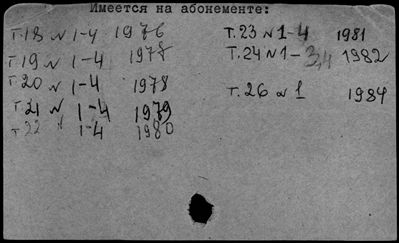 Имеется на абонементе:
т.18 № 1-4 1976
т.19 № 1-4 1978
т.20 № 1-4 1978
т.21 № 1-4 1979
т.22 № 1-4 1980
т.23 № 1-4 1981
т.24 № 1-3,4 1982
т.26 № 1 1984